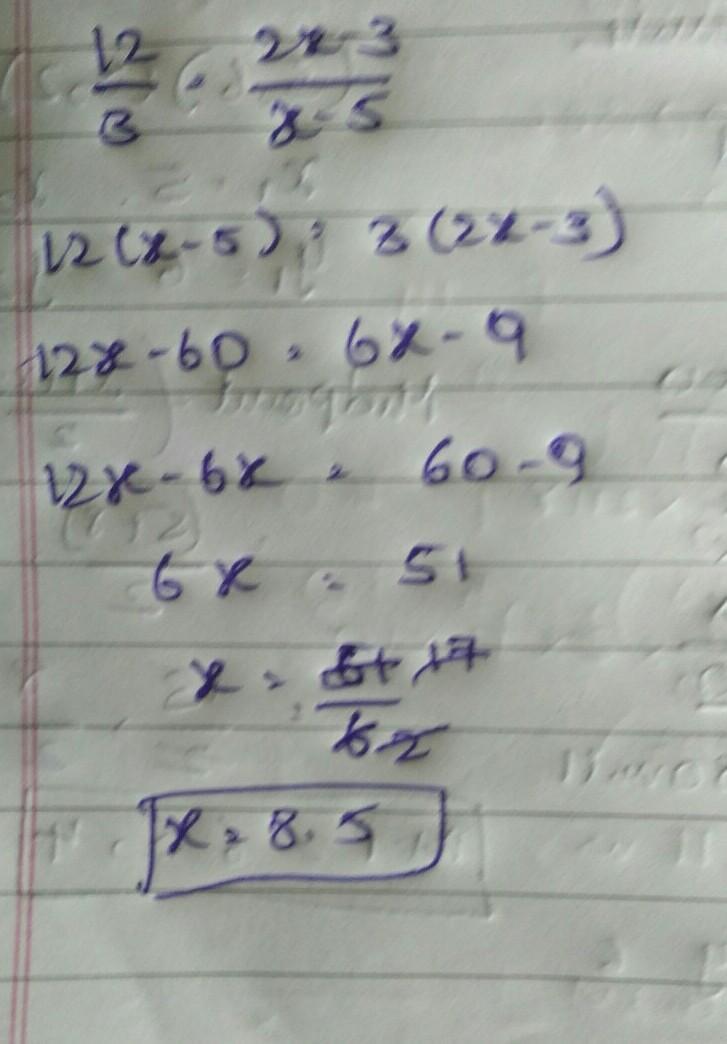 12/3 = 2x-3/x-5
12(x-5) = 3(2x-3)
12x-60 = 6x-9
12x-6x = 60-9
6x = 51
x = 51 17/6 2
x = 8.5